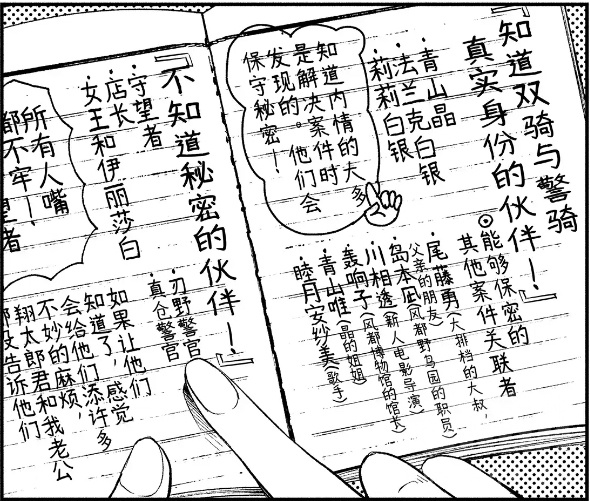 『知道双骑与警骑
真实身份的伙伴!』
・青山晶
・法兰克白银
・莉莉白银
知道内情的大多
是解决案件时
发现的。他们会
保守秘密!
◎能够保密的
其他案件关联者
・尾藤勇(大排档的大叔,
父亲的朋友)
・岛本凪(风都野鸟园的职员)
・川相透(新人电影导演)
・轰响子(风都博物馆的馆长)
・青山唯(晶的姐姐)
・睦月安纱美(歌手)
『不知道秘密的伙伴!』
・守望者
・店长
・女王和伊丽莎白
所有人嘴
都不牢!
望者
・刃野警官
・真仓警官
如果让他们
知道了,感觉
会给他们添许多
不妙的麻烦,
翔太郎君和我老公
都没告诉他们